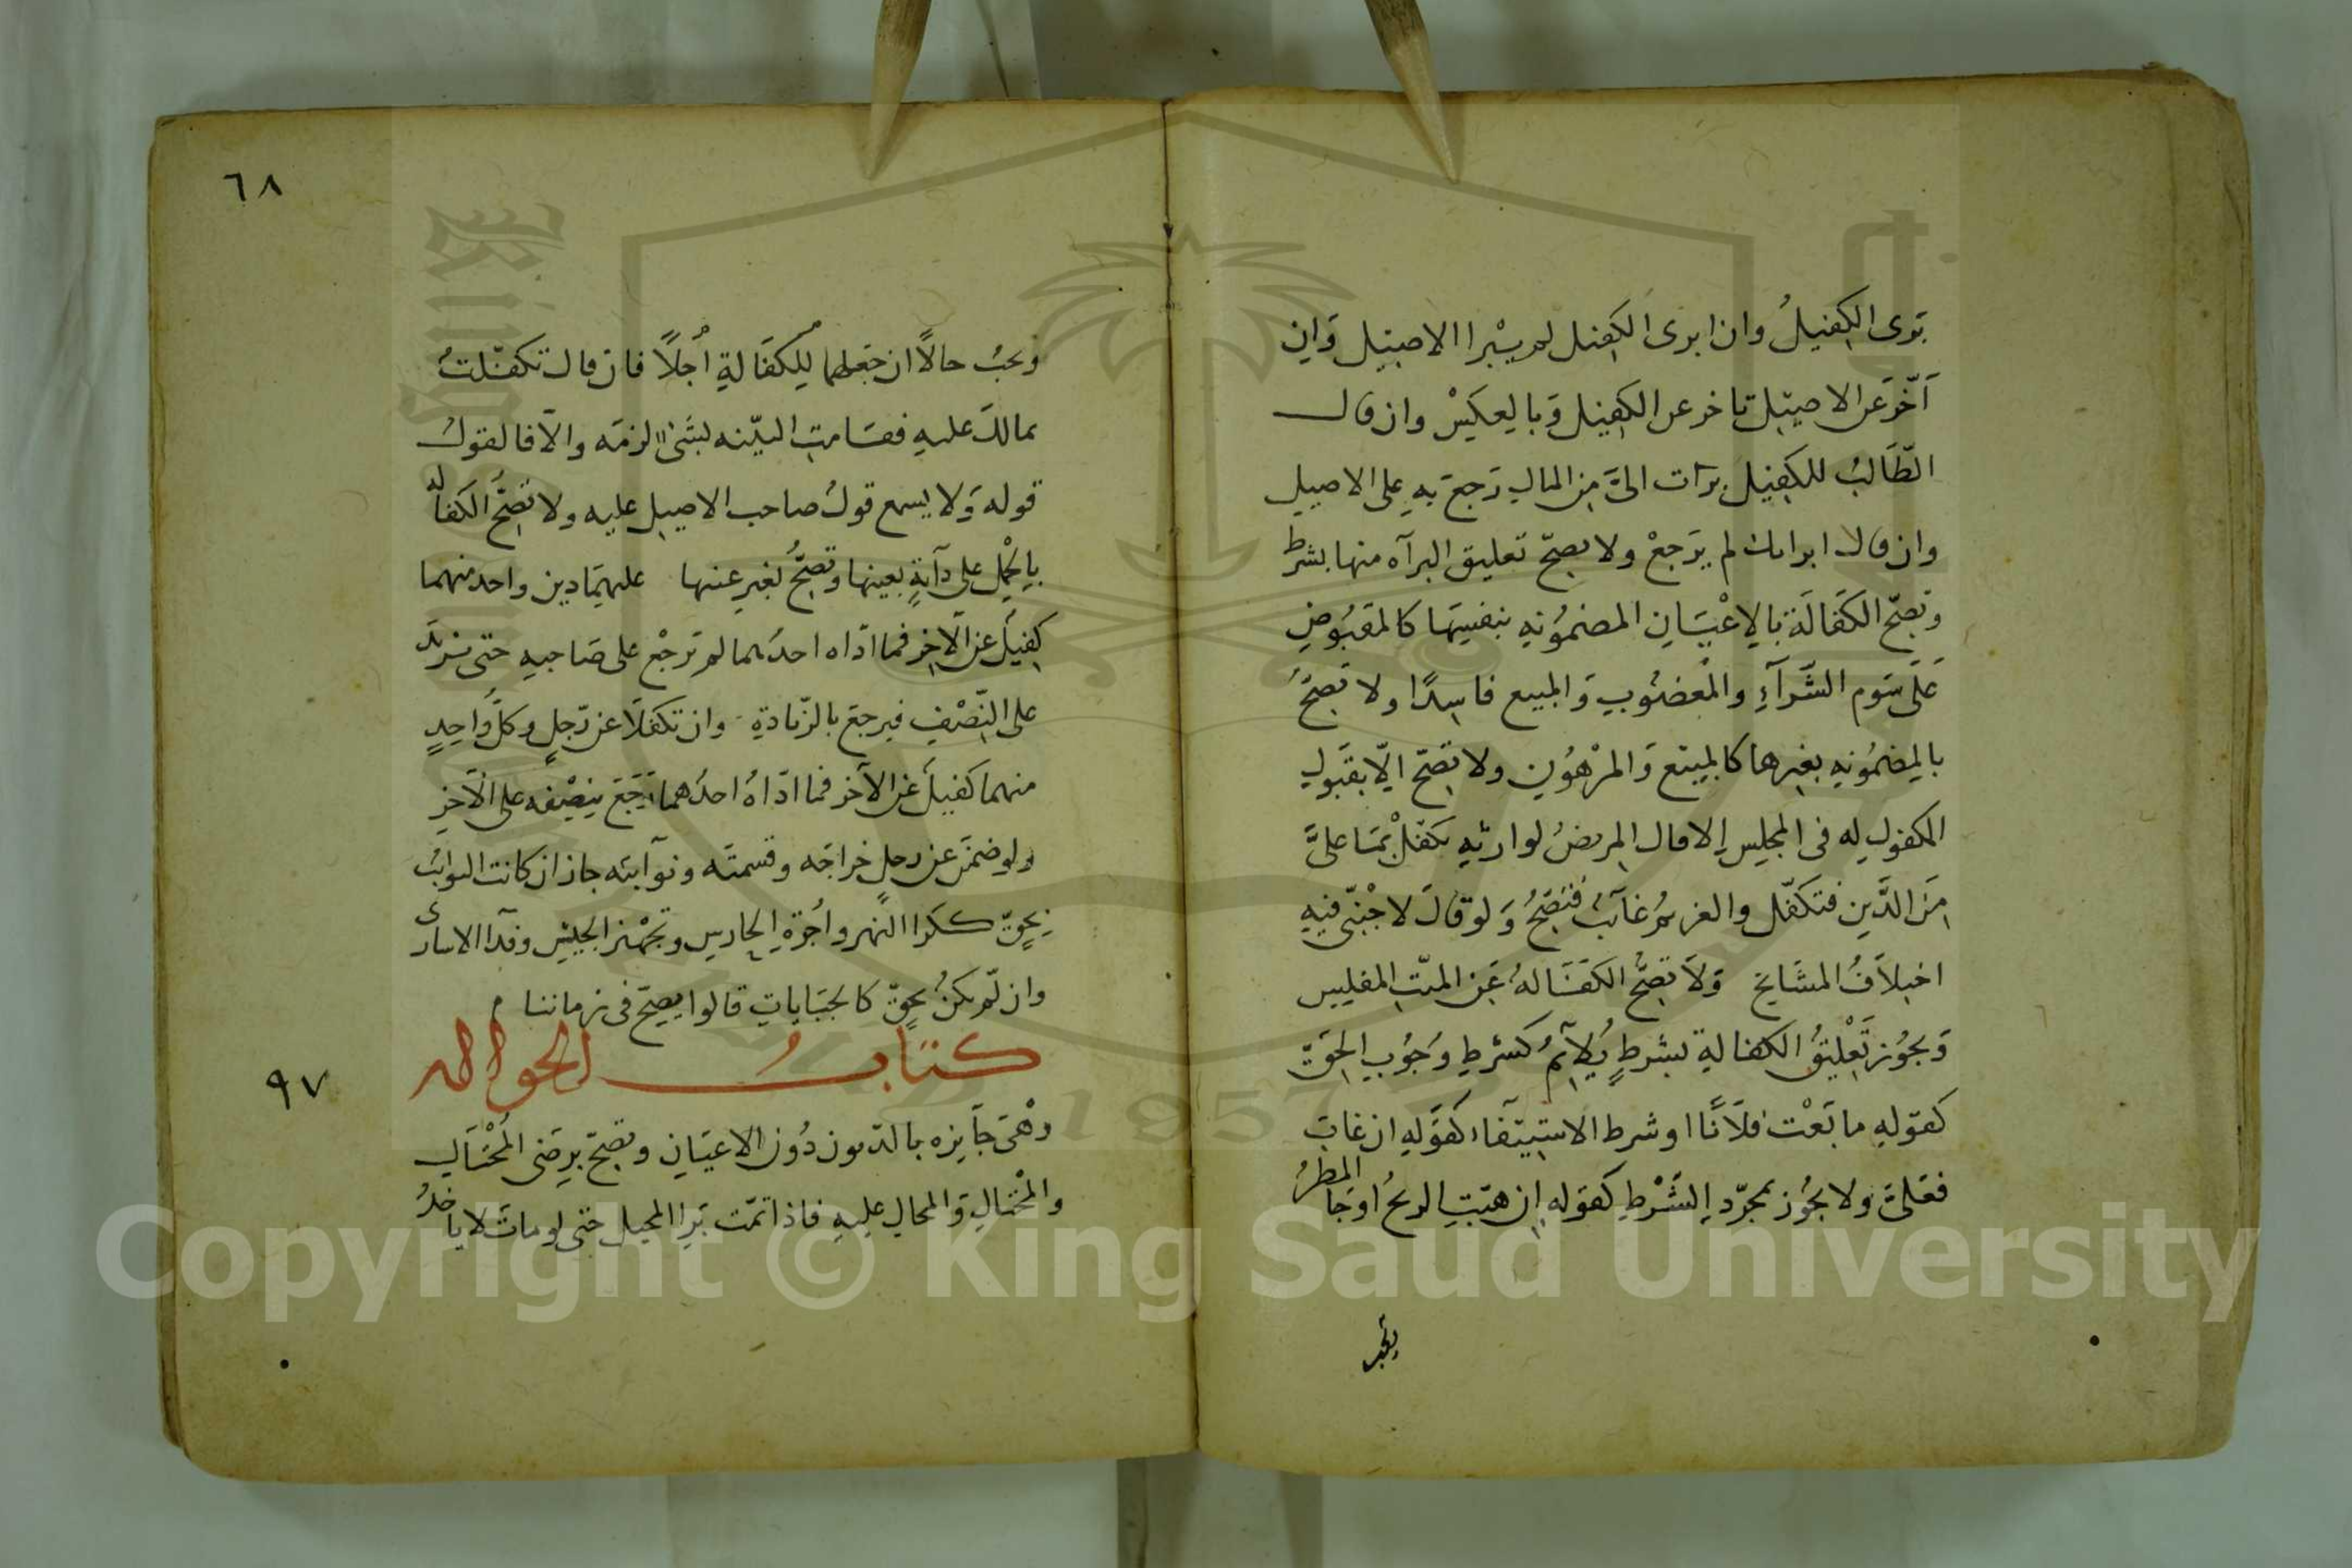 برى الكفيلُ وان ابرى الكفيل لم يبْرا الاصيل وَان
اَخّر عَن الاصيل تاخر عن الكفيل وَبالعكسْ وان قال
الطّالبُ للكفيل برات الىَّ من المال رَجعَ بهِ على الاصيل
وان قال ابراتك لم يرَجعْ ولا يصحّ تعليق البرآه منها بشرط
وتصحّ الكفَالَة بالاِعْيَانِ المضمُونهِ بنفسِهَا كالمقبُوضِ
عَلَى سَوم الشَّرَآءِ والمْغصُوبِ وَالمبيع فاسدًا ولا تصحُّ
بالمضمُونهِ بغيرها كالمبيَع وَالمرْهُونِ ولا تصحّ الّا بقبَولِ
المكفول له فى المجلِس اِلا قال المريضُ لوارثهِ تكفلْ بمَا علىَّ
مِنَ الدَّينِ فتكفّل والغريمُ غآئبٌ فتصَحُّ وَلو قالَ لاجْنبّى فيهِ
اختلافُ المشَايخ وَلاَ تصِحُّ الكفَالهُ عَن الميّتِ المفليس
وَيجوُز تَعْليقُ الكفالةِ بشرطٍ يُلآئِمُ كشرطِ وُجوُبِ الحَقّ
كقوَلهِ ما بَعْت فلاَنًا او شرط الاستِيَفَاء كقوَلهِ ان غابَ
فعَلىَّ ولا يجوُز بمجرّدِ الشَّرْطِ كقوَلهِ ان هبَّتِ الريحُ اوجَا المطرُ
٦٨
وَيجبُ حالاً ان جَعلهَا للِكفَالةِ أجْلاً فان قال تكفّلتُ
بمالكَ عليهِ فقَامتِ البيّنه بشَىْ لزمَه والاّ فالقولُ
قوله وَلا يسمع قولُ صاحب الاصيل عليه ولا تصِحُّ الكفاله
بالحَمْلِ على دآبةٍ بعينها وتصحُّ بغيرِ عينها عليهمَا دين واحد منهما
كفيلٌ عن الآخِر فما ادّاه احدُهما لم يَرجَع على صَاحبهِ حتى يزيدَ
على النّصْفِ فيرجعَ بالزّيادةِ وان تكفلاَ عن رّجلٍ وكلُّ واحِدٍ
منهما كفيلٌ عَن الآخر فما ادّاهُ احدُهما رَجَعَ بنِصْفه على الآخرِ
ولو ضمَن عن رجلٍ خراجَه وقسمتَه ونوآئبَه جاز ان كانت النوائبُ
بحقّ ككرا النهرِ واُجُرَةِ الحارسِ وتجهْيز الجيشِ وفدآ الاسارى
وان لّم يكنُ بحقّ كالجبَاياتِ قالوا يصحّ فى زماننا
كتابُ الحواله
٩٧
وهْىَ جَآيزه بالدّيون دُونَ الاعيَانِ وتصحّ برِضَى المُحْتَالِ
والمْحتَالِ وَالمحالِ عليهِ فاذا تمّت بَرِا المحيل حتى لو ماتَ لا ياخدُ
Copyright © King Saud University
1957